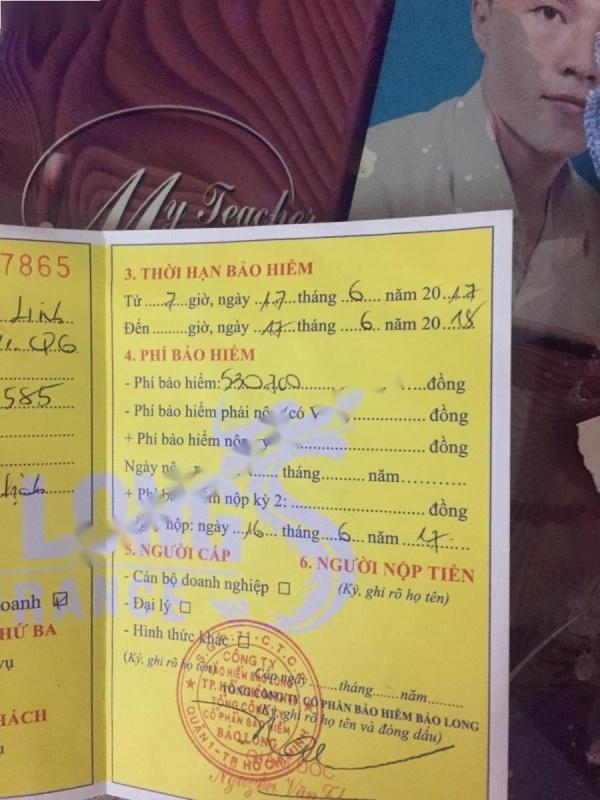 My Teacher
7865
Linh
CPG
585
oanh
HỨ BA
vụ
HÁCH
ụ
3. THỜI HẠN BẢO HIỂM
Từ ......7....giờ, ngày ..17..tháng ..6.... năm 20 .17
Đến ........giờ, ngày ..17...tháng ..6.... năm 20 .18
4. PHÍ BẢO HIỂM
- Phí bảo hiểm: 530.700 ........đồng
- Phí bảo hiểm phải nộ (có V ........đồng
+ Phí bảo hiểm nộp ........đồng
Ngày nộ ........tháng........năm........
+ Phí nộp kỳ 2:........đồng
nộp: ngày ..16...tháng...6.... năm ..17..
LONG
RANCE
5. NGƯỜI CẤP
- Cán bộ doanh nghiệp ☐
- Đại lý ☐
- Hình thức khác ☐
(Ký, ghi rõ họ tên)
6. NGƯỜI NỘP TIỀN
(Ký, ghi rõ họ tên)
Cấp ngày........tháng........năm........
TỔNG CÔNG TY CỔ PHẦN BẢO HIỂM BẢO LONG
(Ký, ghi rõ họ tên và đóng dấu)
C.T.C.
CÔNG TY
BẢO HIỂM BẢO LONG
TP. HỒ CHÍ MINH
TỔNG CÔNG TY
CỔ PHẦN BẢO HIỂM
BẢO LONG
QUẬN 1 - TP HỒ CHÍ MINH
ĐỐC
Nguyễn Văn